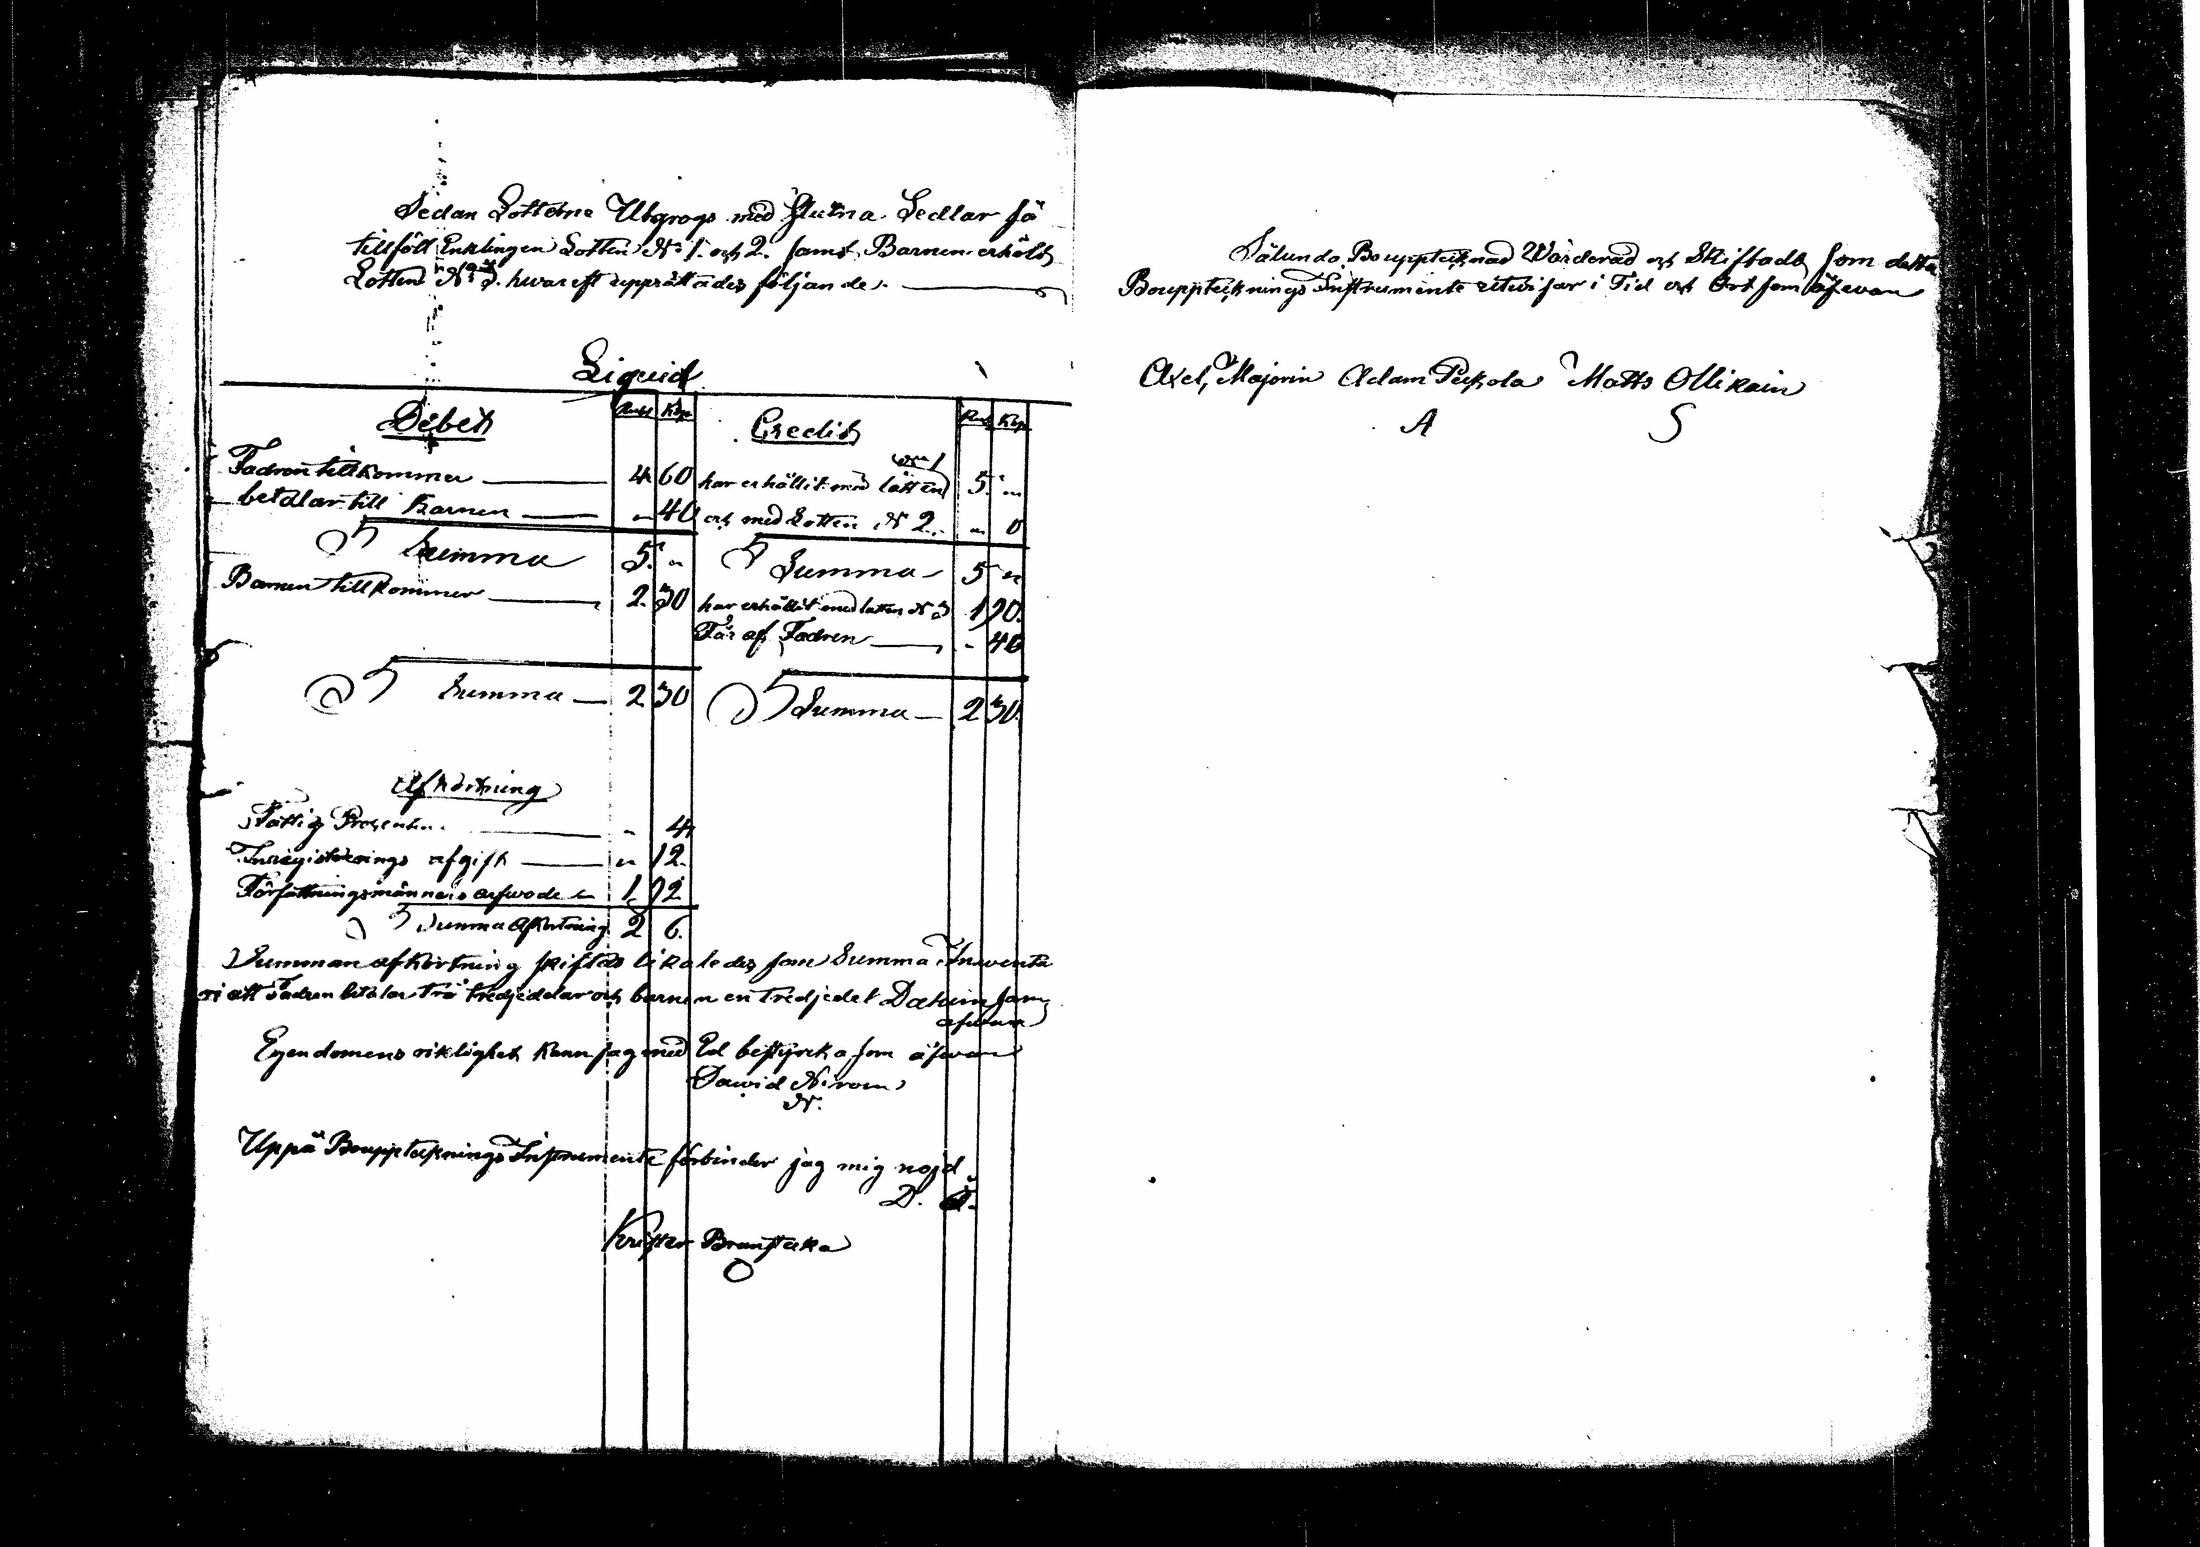 Sedan Lotterne Utgrogs med slutna Sedlar så
tillföll Enklingen Lotten No 1. och 2. samt Barnen erhölt
Lotten No 3. hwareft upprättades följande.
Liquid
Debet Rubl Kop Credit Rub Kop
Fadren tillkommer 4 60 har erhållit med lotten No 1 5. "
betalar till Barnen " 40 och med Lotten N 2. " 0
Summa 5. " Summa 5 "
Barnen tillkommer 2. 30 har erhållit med lotten N 3 1 90.
Får af Fadren - 40
Summa 2 30 Summa 2 30.
Afkortning
Fattig Procenten. " 4
Inregistrerings afgift " 12.
Författningsmännens arfwode 1. 92
Summa Afkortning 2 6.
Summan afkortning skiftas likaledes som Summa Inventa
ri att Fadren betalar två tredjedelar och barnen en tredjedel Datum som
ofwan
Egendomens riklighet kann jag med Ed bestyrcka som åfwan
Dawid
N.
Uppå Bouppteknings Instrumente förbinder jag mig nöjd
D. Ü.
Krister
O
Sålunda Bouppteknad Wärderad och Skiftadt som detta
Bouppteknings Instrumente utwisar i Tid och Ort som åfwan
Axel Majorin Adam Peckola Matts Ollikain
A S